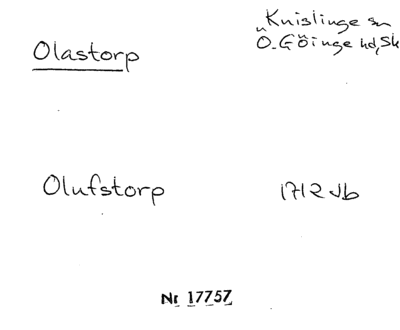 Olastorp
Knislinge sn
Ö. Göinge hd, Sk
Olufstorp
1712 Jb
Nr 17757